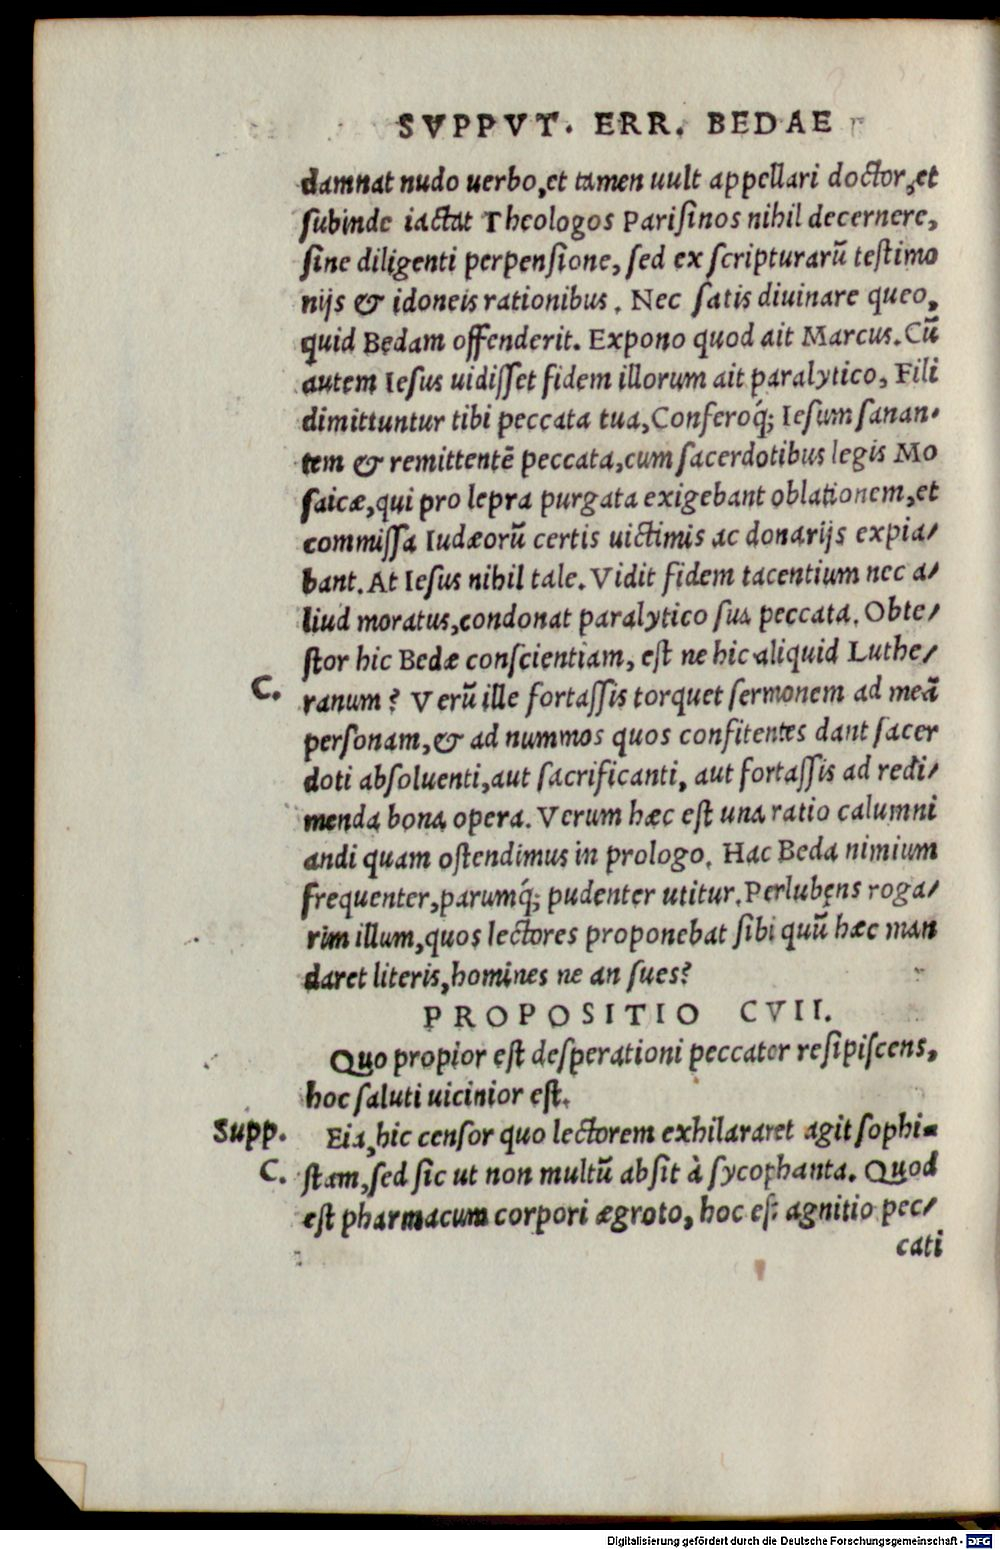 SVPPVT. ERR. BEDAE
damnat nudo uerbo, et tamen uult appellari doctor, et
subinde iactat Theologos Parisinos nihil decernere,
sine diligenti perpensione, sed ex scripturarũ testimo
nijs & idoneis rationibus. Nec satis diuinare queo,
quid Bedam offenderit. Expono quod ait Marcus. Cũ
autem Iesus uidisset fidem illorum ait paralytico, Fili
dimittuntur tibi peccata tua, Conferoq́; Iesum sanan-
tem & remittentẽ peccata, cum sacerdotibus legis Mo
saicæ, qui pro lepra purgata exigebant oblationem, et
commissa Iudæorũ certis uictimis ac donarijs expia/
bant. At Iesus nihil tale. Vidit fidem tacentium nec a/
liud moratus, condonat paralytico sua peccata. Obte/
stor hic Bedæ conscientiam, est ne hic aliquid Luthe/
C.
ranum? Verũ ille fortassis torquet sermonem ad meã
personam, & ad nummos quos confitentes dant sacer
doti absoluenti, aut sacrificanti, aut fortassis ad redi/
menda bona opera. Verum hæc est una ratio calumni
andi quam ostendimus in prologo. Hac Beda nimium
frequenter, parumq́; pudenter utitur. Perlubens roga/
rim illum, quos lectores proponebat sibi quũ hæc man
daret literis, homines ne an sues?
PROPOSITIO CVII.
Quo propior est desperationi peccator resipiscens,
hoc saluti uicinior est.
Supp.
Eia, hic censor quo lectorem exhilararet agit sophi-
C.
stam, sed sic ut non multũ absit à sycophanta. Quod
est pharmacum corpori ægroto, hoc est agnitio pec/
cati
Digitalisierung gefördert durch die Deutsche Forschungsgemeinschaft - DFG